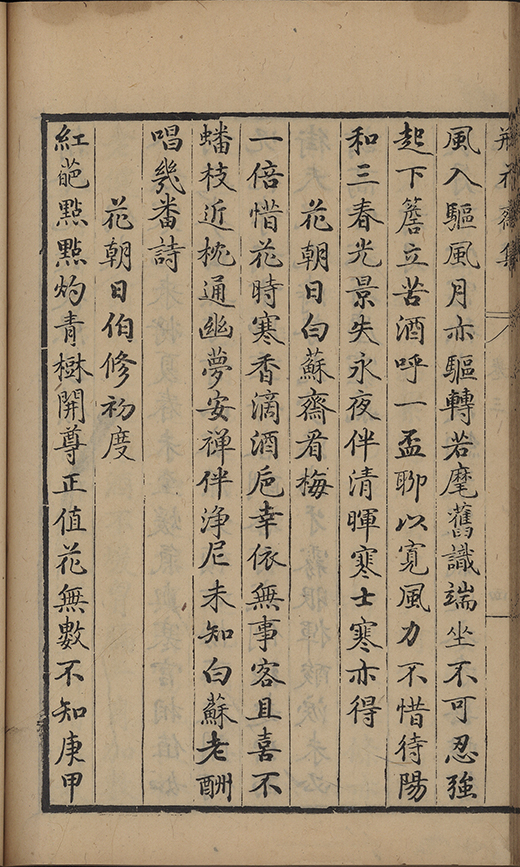 瓶花齋集
風入驅風月亦驅轉若麾舊識端坐不可忍強
起下簷立苦酒呼一盃聊以寬風力不惜待陽
和三春光景失永夜伴清暉寒士寒亦得
花朝日白蘇齋看梅
一倍惜花時寒香滴酒巵幸依無事客且喜不
蟠枝近枕通幽夢安禅伴浄尼未知白蘇老酬
唱幾番詩
花朝日伯修初度
紅葩點點灼青樹開尊正值花無數不知庚甲